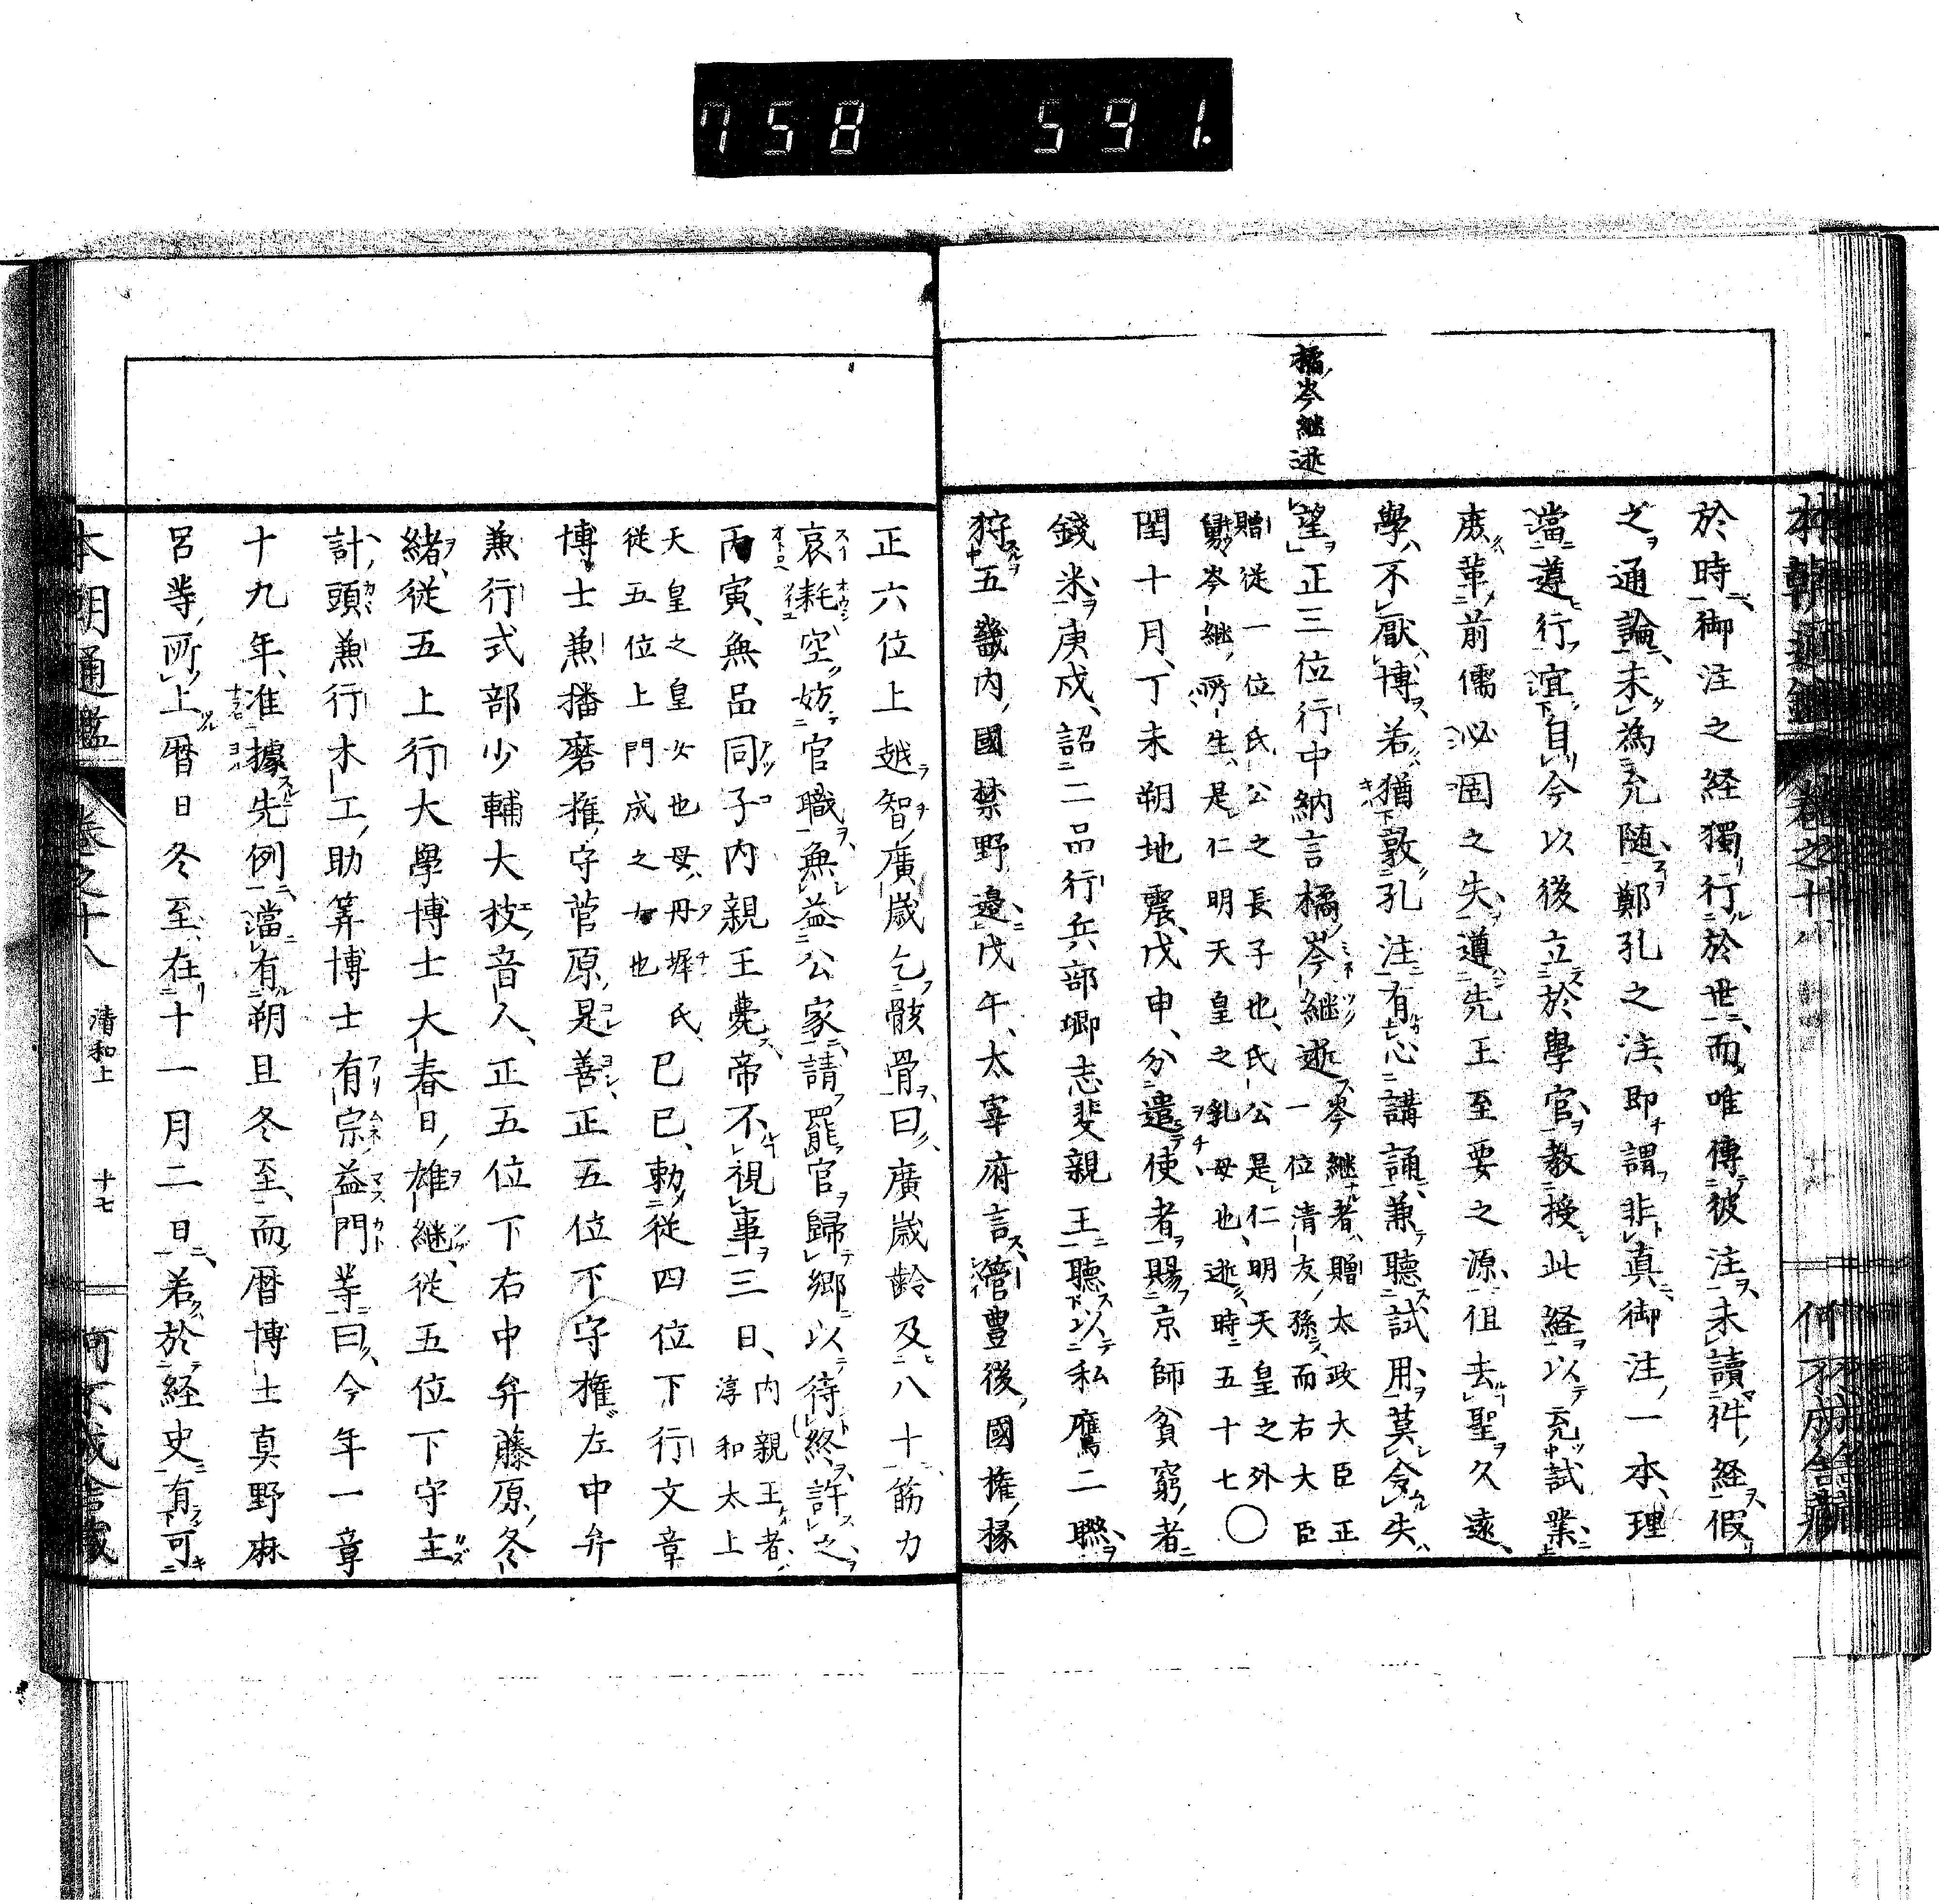 758 591.
橘岑継逝
於時御注之経獨行於世而唯傳彼注未讀件経假
之通論未為允随鄭孔之注即謂非真御注一本理
當遵行宜自今以後立於學官教授此経以充試業
庶革前儒泌固之失遵先王至要之源但去聖久遠
學不厭博若猶敦孔注有心講誦兼聽試用莫令失
望正三位行中納言橘岑継逝
岑継者贈太政大臣正一位清友孫而右大臣
贈従一位氏公之長子也氏公是仁明天皇之外
舅岑継所生是仁明天皇之乳母也逝時五十七〇
閏十月丁未朔地震戊申分遣使者賜京師貧窮者
錢米庚戌詔二品行兵部卿忠斐親王聽以私鷹二聯
狩五畿内國禁野邉戊午太宰府言管豊後國権掾
正六位上越智廣歳乞骸骨曰廣歳齢及八十筋力
哀耗空妨官職無益公家請罷官歸郷以待終許之
丙寅無品同子内親王薨帝不視事三日
内親王者淳和太上
天皇之皇女也母丹墀氏
従五位上門成之女也
巳巳勅従四位下行文章
博士兼播磨権守菅原是善正五位下守権左中弁
兼行式部少輔大枝音人正五位下右中弁藤原冬
緒従五上行大學博士大春日雄継従五位下守主
計頭兼行木工助筭博士有宗益門等曰今年一章
十九年准據先例當有朔旦冬至而暦博士真野麻
呂等所上暦日冬至在十一月二日若於経史有可
本朝通鑑
巻之十八
清和上
十七